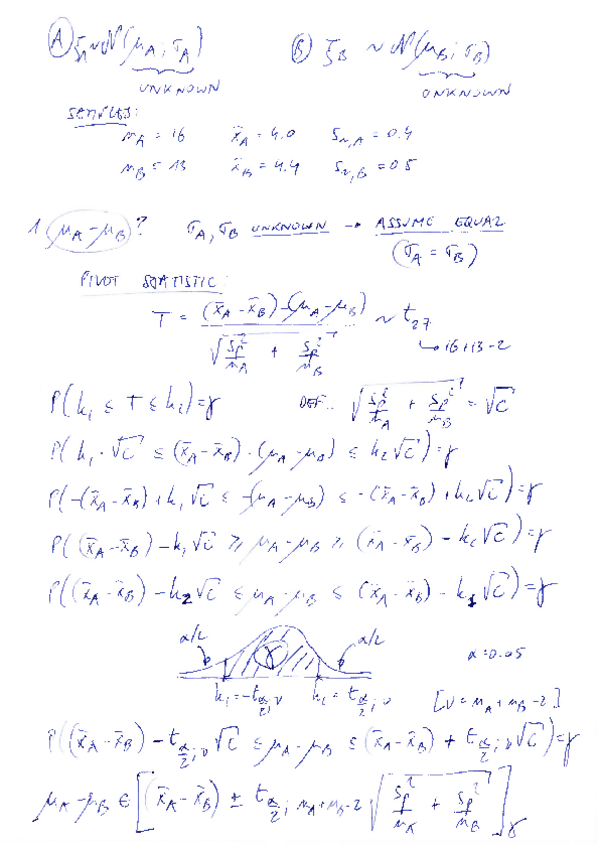 Ⓐ ξ_A ~ N(μ_A ; σ_A)   Ⓑ ξ_B ~ N(μ_B ; σ_B)
UNKNOWN   UNKNOWN
SAMPLES:
n_A = 16   x̄_A = 4.0   S_{n,A} = 0.4
n_B = 13   x̄_B = 4.4   S_{n,B} = 0.5
1. μ_A - μ_B ?   σ_A, σ_B UNKNOWN → ASSUME EQUAL
(σ_A = σ_B)
PIVOT STATISTIC:
T = ((x̄_A - x̄_B) - (μ_A - μ_B)) / √(S_p²/n_A + S_p²/n_B) ~ t_27
↳ 16+13-2
P(k_1 ≤ T ≤ k_2) = γ   DEF.. √(S_p²/n_A + S_p²/n_B) = √C
P(k_1 · √C ≤ (x̄_A - x̄_B) - (μ_A - μ_B) ≤ k_2 √C) = γ
P(-(x̄_A - x̄_B) + k_1 √C ≤ -(μ_A - μ_B) ≤ -(x̄_A - x̄_B) + k_2 √C) = γ
P((x̄_A - x̄_B) - k_1 √C ≥ μ_A - μ_B ≥ (x̄_A - x̄_B) - k_2 √C) = γ
P((x̄_A - x̄_B) - k_2 √C ≤ μ_A - μ_B ≤ (x̄_A - x̄_B) - k_1 √C) = γ
α/2   γ   α/2   α = 0.05
k_1 = -t_{α/2; ν}   k_2 = t_{α/2; ν}   [ν = n_A + n_B - 2]
P((x̄_A - x̄_B) - t_{α/2; ν} √C ≤ μ_A - μ_B ≤ (x̄_A - x̄_B) + t_{α/2; ν} √C) = γ
μ_A - μ_B ∈ [(x̄_A - x̄_B) ± t_{α/2; n_A+n_B-2} √(S_p²/n_A + S_p²/n_B)]_γ